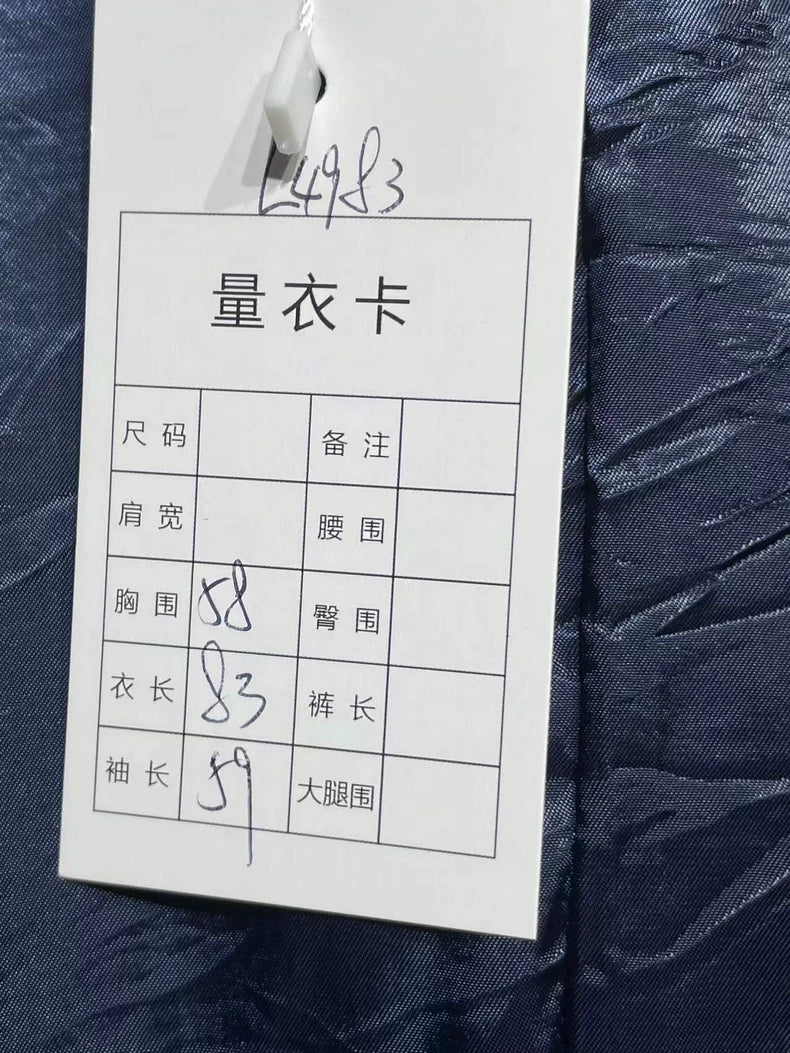 L4983
量衣卡
尺码 备注
肩宽 腰围
胸围 58 臀围
衣长 83 裤长
袖长 59 大腿围